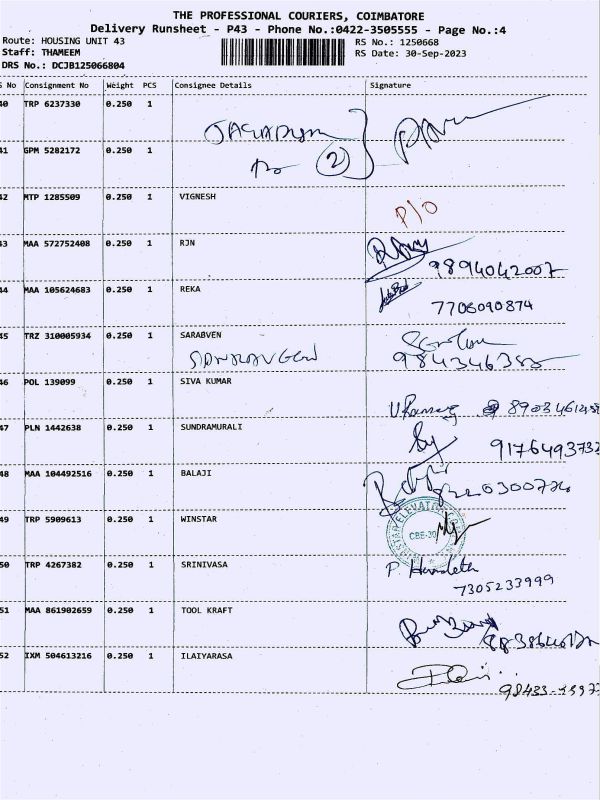 THE PROFESSIONAL COURIERS, COIMBATORE
Delivery Runsheet - P43 - Phone No.:0422-3505555 - Page No.:4
Route: HOUSING UNIT 43 RS No.: 1250668
Staff: THAMEEM RS Date: 30-Sep-2023
DRS No.: DCJB125066804
S No Consignment No Weight PCS Consignee Details Signature
40 TRP 6237330 0.250 1
41 GPM 5282172 0.250 1 2
42 MTP 1285509 0.250 1 VIGNESH P/O
43 MAA 572752408 0.250 1 RJN
9894042007
44 MAA 105624683 0.250 1 REKA
7706090874
45 TRZ 310005934 0.250 1 SARABVEN
46 POL 139099 0.250 1 SIVA KUMAR
47 PLN 1442638 0.250 1 SUNDRAMURALI
9176493737
48 MAA 104492516 0.250 1 BALAJI
49 TRP 5909613 0.250 1 WINSTAR CBE-30
50 TRP 4267382 0.250 1 SRINIVASA
7305233999
51 MAA 861902659 0.250 1 TOOL KRAFT
52 IXM 504613216 0.250 1 ILAIYARASA